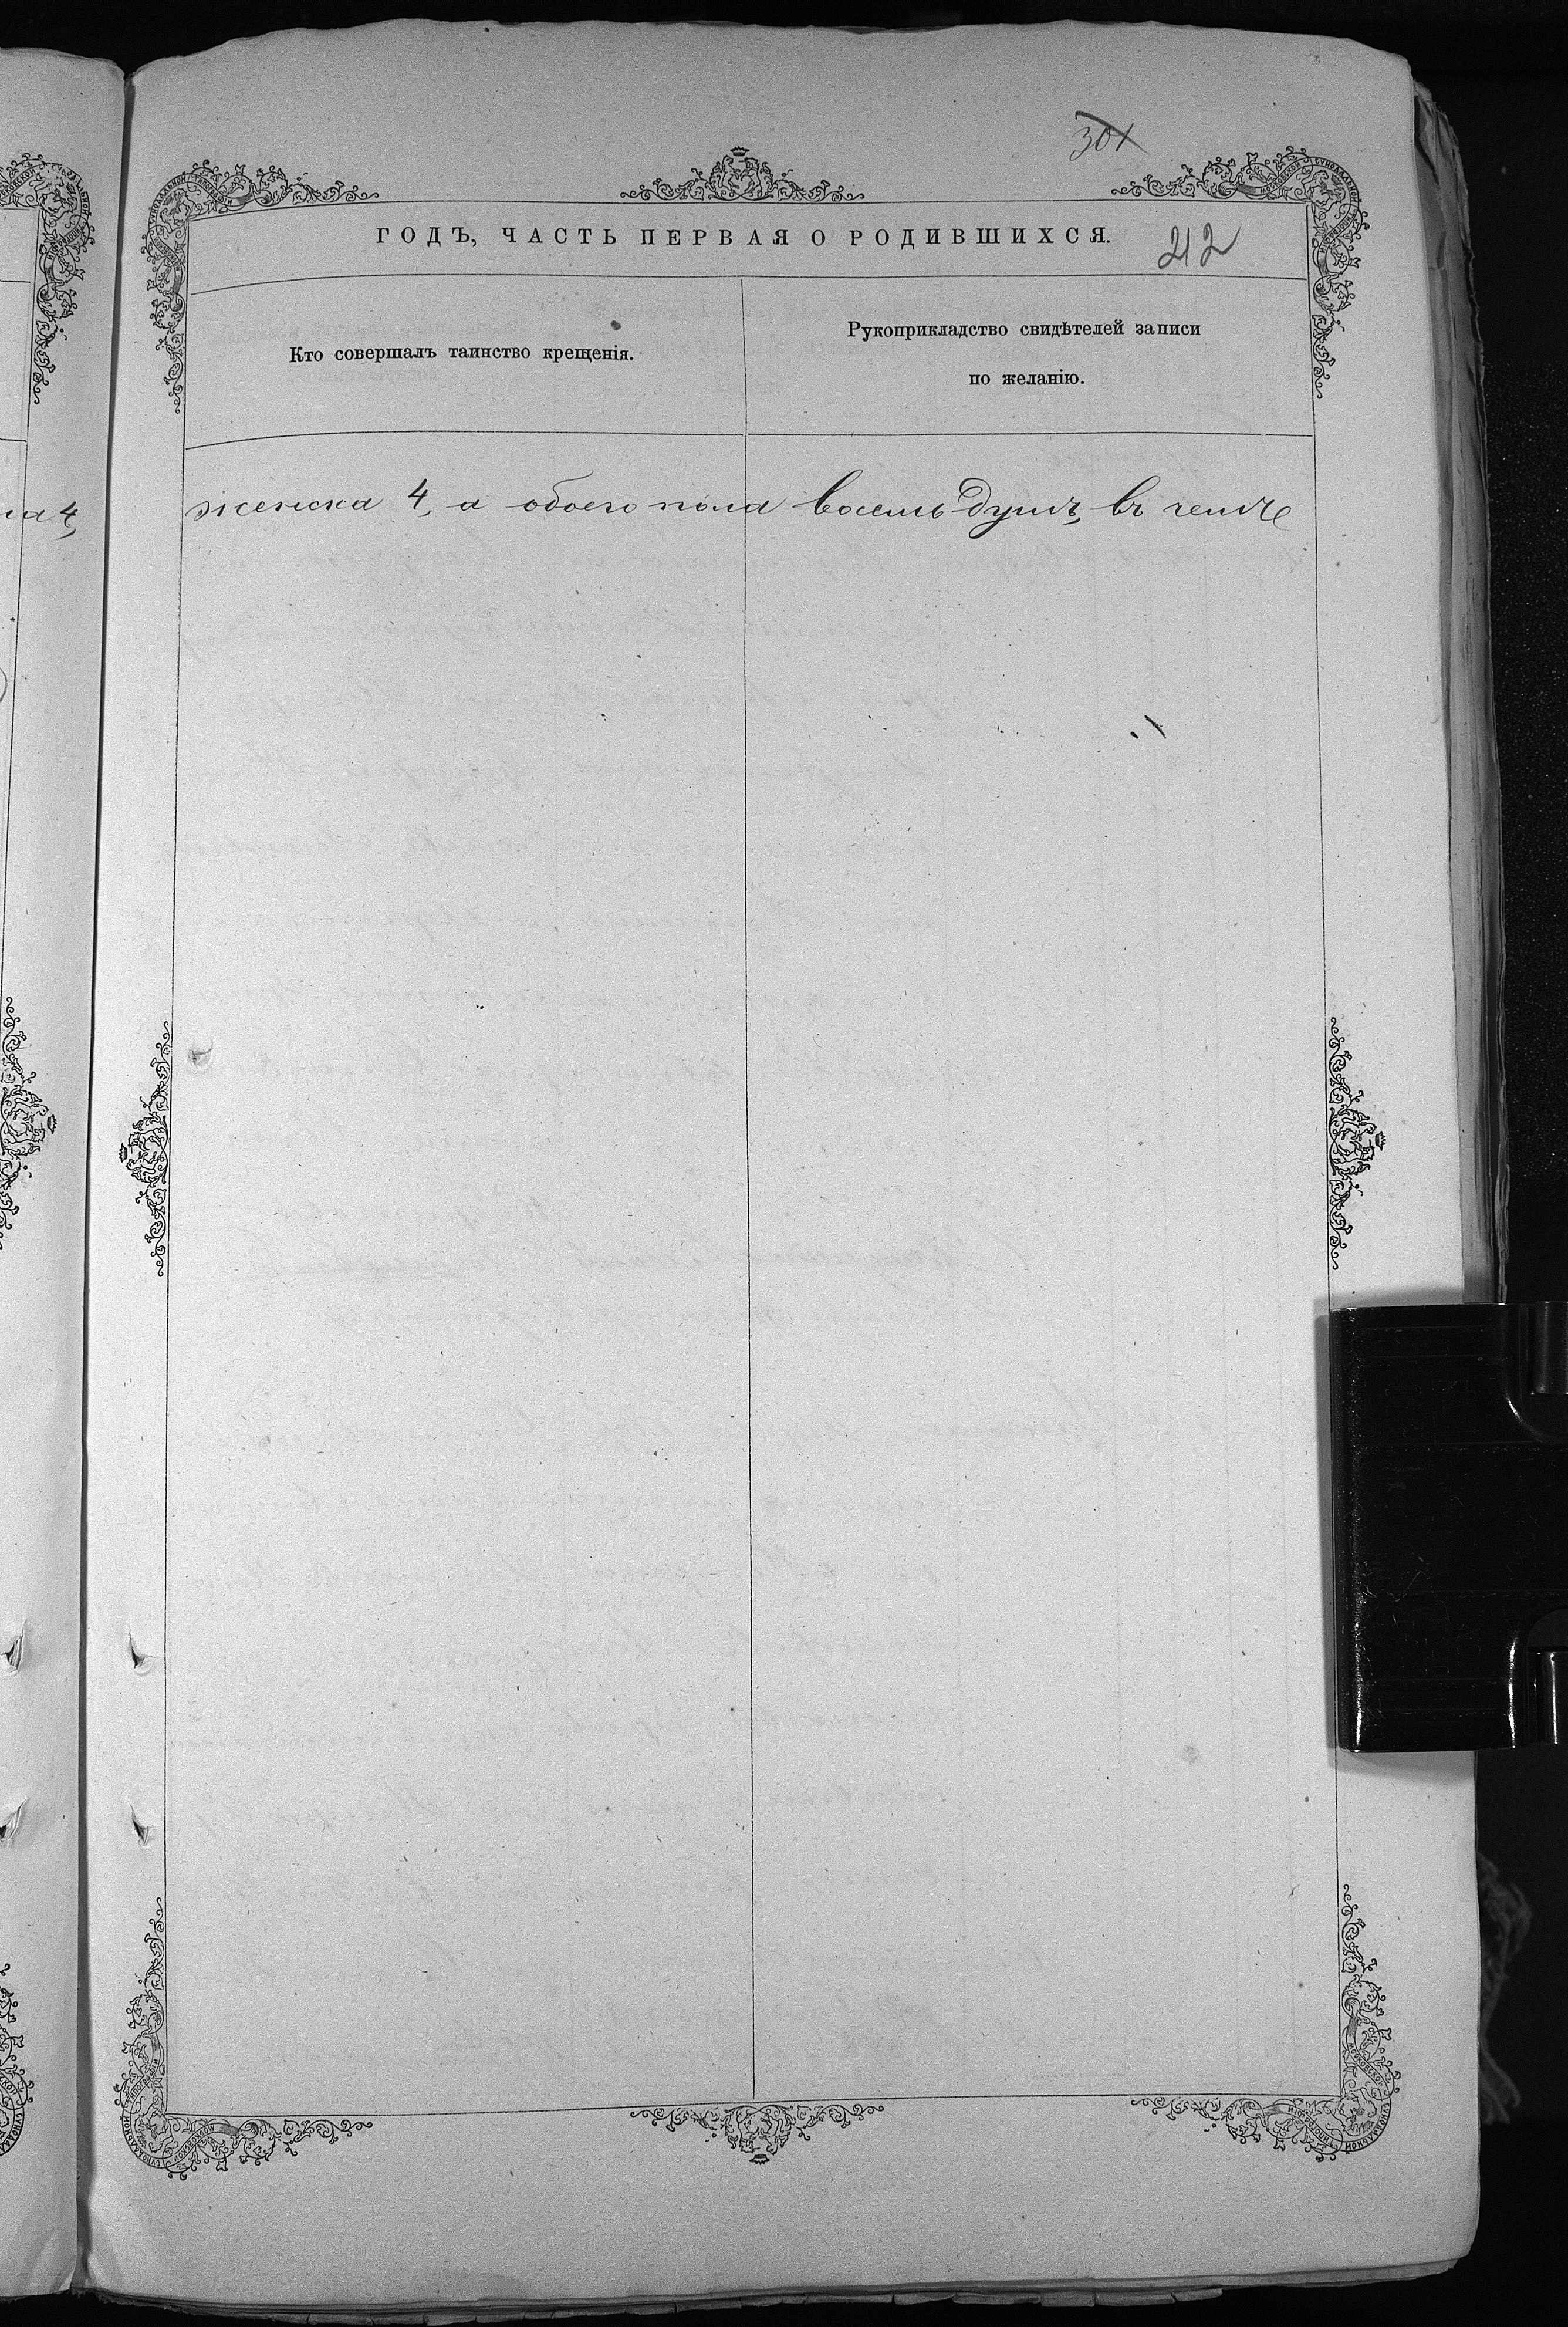 301
ГОДЪ, ЧАСТЬ ПЕРВАЯ О РОДИВШИХСЯ. 212
Кто совершалъ таинство крещенія.
Рукоприкладство свидѣтелей записи
по желанію.
на 4,
женска 4, а обоего пола восемь душъ, въ чемъ